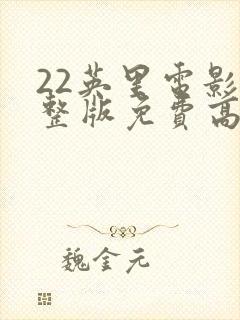 22英里电影
整版免费高
魏金元